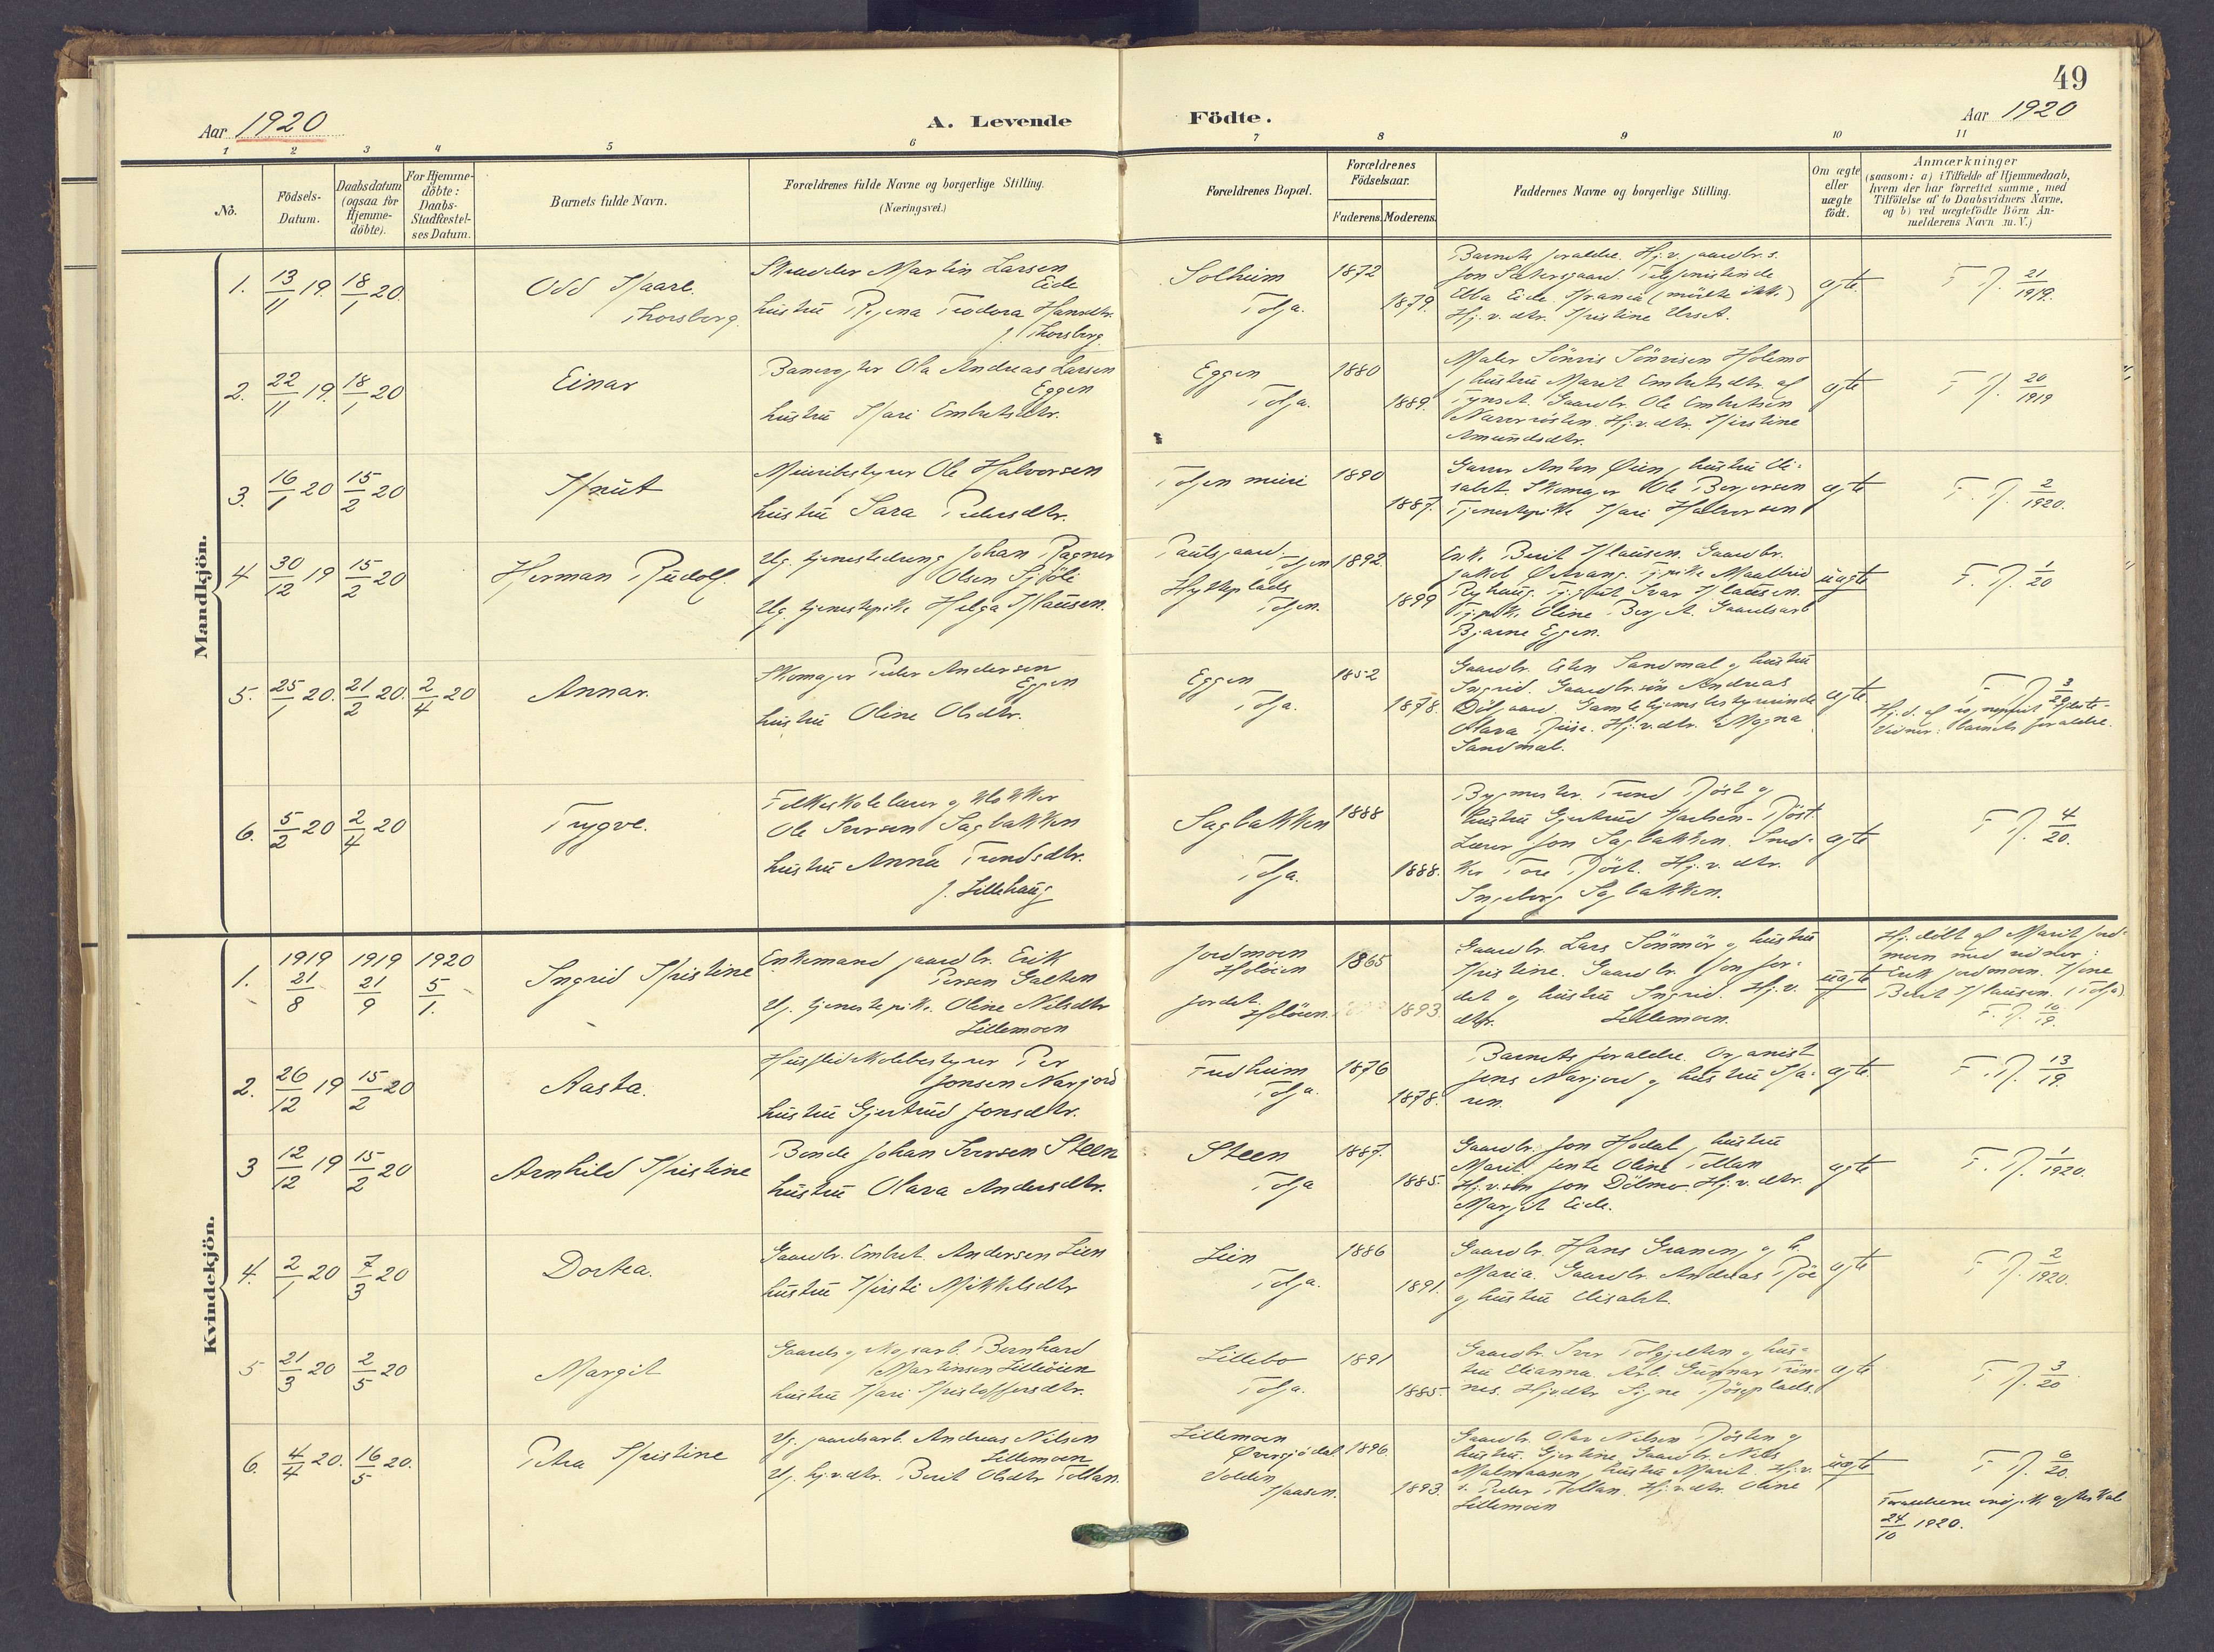 49
Aar 1920
A. Levende
Födte.
Aar 1920
1 2 3 4 5 6 7 8 9 10 11
No.
Födsels-
Datum.
Daabsdatum
(ogsaa for
Hjemme-
döbte).
For Hjemme-
döbte:
Daabs-
Stadfæstel-
ses Datum.
Barnets fulde Navn.
Forældrenes fulde Navne og borgerlige Stilling.
(Næringsvei.)
Forældrenes Bopæl.
Forældrenes
Födselsaar.
Faderens. Moderens.
Faddernes Navne og borgerlige Stilling.
Om ægte
eller
uægte
födt.
Anmærkninger
(saasom: a) i Tilfælde af Hjemmedaab,
hvem der har forrettet samme, med
Tilföielse af to Daabsvidners Navne,
og b) ved uægtefödte Börn An-
melderens Navn m. V.)
Mandkjön.
1. 13/11 19. 18/1 20.
Odd Kaare
Thorsberg.
Skrædder Martin Larsen
Eide
hustru Regina Teodora Hansdtr.
f. Thorsberg
Solheim
Tolga.
1872
1879.
Barnets forældre. Hj.v. gaardbr.s.
Jon Sætersgaard. Telefonistinde
Ebba Eide, Kristiania (mötte ikke)
Hj.v. dtr. Kristine Urset.
ægte.
F. R. 21/1919.
2. 22/11 19. 18/1 20
Einar
Banevogter Ola Andreas Larsen
Eggen
hustru Kari Embretsdtr.
Eggen
Tolga.
1880
1889.
Maler Sönvis Sönvisen Holemo
, hustru Marit Embretsdtr. af
Tynset. Gaardbr. Ole Embretsen
Hj.v. dtr. Kirstine
Amundsdtr.
ægte
F R. 20/1919
3. 16/1 20 15/2 20
Knut
Meieribestyrer Ole Halvorsen
hustru Sara Pedersdtr.
Tolgen meieri
1890
1887.
Garver Anton Øien, hustru Eli-
sabet. Skomager Ole Bergersen
Tjenestepike Kari Halvorsen
ægte
F. R. 2/1920.
4 30/12 19 15/2 20
Herman Rudolf
Ug. tjenestedreng Johan Ragner
Olsen Sjöli
Ug. tjenestepike Helga Klausen.
Paulsgaard.
Tolgen
Hytteplads
Tolgen.
1892.
1899
Enke Berit Klausen. Gaardbr.
Jakob Tj.pike
Ryhaug. Tj.gut Ivar Klausen.
Tj.pike Oline Berget. Gaardsarb
Bjarne Eggen.
uægte
F. R. 1/20
5. 25/1 20. 21/2 20. 2/4 20
Annar.
Skomager Peder Andersen
Eggen
hustru Oline Olsdtr.
Eggen
Tolga.
1852
1878.
Gaardbr. Esten Sandmæl og hustru
Ingrid. Gaardbr.sön Andreas
Dölgaard. Gamlehjemsbestyrerinde
Olava Hj.v. dtr. Magna
Sandmæl.
ægte.
F. R. 3/20
Hj.d. af sogneprest
Vidner: barnets forældre.
6. 5/2 20 2/4 20
Trygve.
Folkeskolelærer og klokker
Ole Iversen Sagbakken
hustru Anna Trondsdtr.
f. Lillehaug
Sagbakken
Tolga.
1888
1888.
Bygmester Trond Röst og
hustru Gjertrud Karlsen-Röst.
Lærer Jon Sagbakken. Sned-
ker Tore Röst. Hj.v. dtr.
Ingeborg Sagbakken.
ægte
F R. 4/20.
Kvindekjön.
1. 1919 21/8 1919 21/9 1920 5/1.
Ingrid Kristine
Enkemand gaardbr. Erik
Persen Galten
Ug. tjenestepike Oline Nilsdtr
Lillemoen
Jordmoen
Holöien
Jordet
Holöien.
1865
1893.
Gaardbr. Lars Sönmör og hustru
Kristine. Gaardbr. Jon Jor-
det og hustru Ingrid. Hj.v.
dtr. Lillemoen.
uægte
Hj.döbt af Marit Jord-
moen med vidner:
Erik Jordmoen. Kone
Berit Klausen. (Tolga)
F. R. 10/19.
2. 26/12 19 15/2 20
Aasta.
Husflidskolebestyrer Per
Jonsen Narjord
hustru Gjertrud Jonsdtr.
Fredheim
Tolga.
1876
1878.
Barnets forældre. Organist
Jens Narjord og hustru Ka-
ren.
ægte.
F. R. 13/19.
3 12/12 19 15/2 20
Arnhild Kristine
Bonde Johan Iversen Steen
hustru Olava Andersdtr.
Steen
Tolga
1887.
1885.
Gaardbr. Jon Hodal, hustru
Marit. Jente Oline Tollan
Hj.v. sön Jon Dölmo. Hj.v. dtr.
Margit Eide.
ægte
F. R. 1/1920.
4. 2/1 20 7/3 20
Dortea.
Gaardbr. Embret Andersen Lien
hustru Kirsti Mikkelsdtr
Lien
Tolga.
1886
1891.
Gaardbr. Hans Granen og h.
Maria. Gaardbr. Andreas Röe
og hustru Elisabet.
ægte
F R. 2/1920.
5 21/3 20 2/5 20
Margit
Gaards og skogsarb. Bernhard
Martinsen Lilleöien
hustru Kari Kristoffersdtr.
Lillebo
Tolga.
1891
1885.
Gaardbr. Iver og hus-
tru Elianna. Arb. Gunnar Trön-
nes. Hj.v.dtr Signe
ægte
F R. 3/20
6. 4/4 20. 16/5 20.
Petra Kristine
Ug. gaardsarb. Andreas Nilsen
Lillemoen
Ug. hj.v. dtr. Berit Olsdtr Tollan.
Lillemoen
Øversjödal
Volden
1896
1893.
Gaardbr. Olav Nilsen Rösten og
hustru Gjertine. Gaardbr. Nils
Malmsaann, hustru Marit. Hj.v.
s. Peder Tollan. Hj.v. dtr. Oline
Lillemoen
uægte
F R. 6/20.
Forældrene indgik ægteskab
24/10 1920.